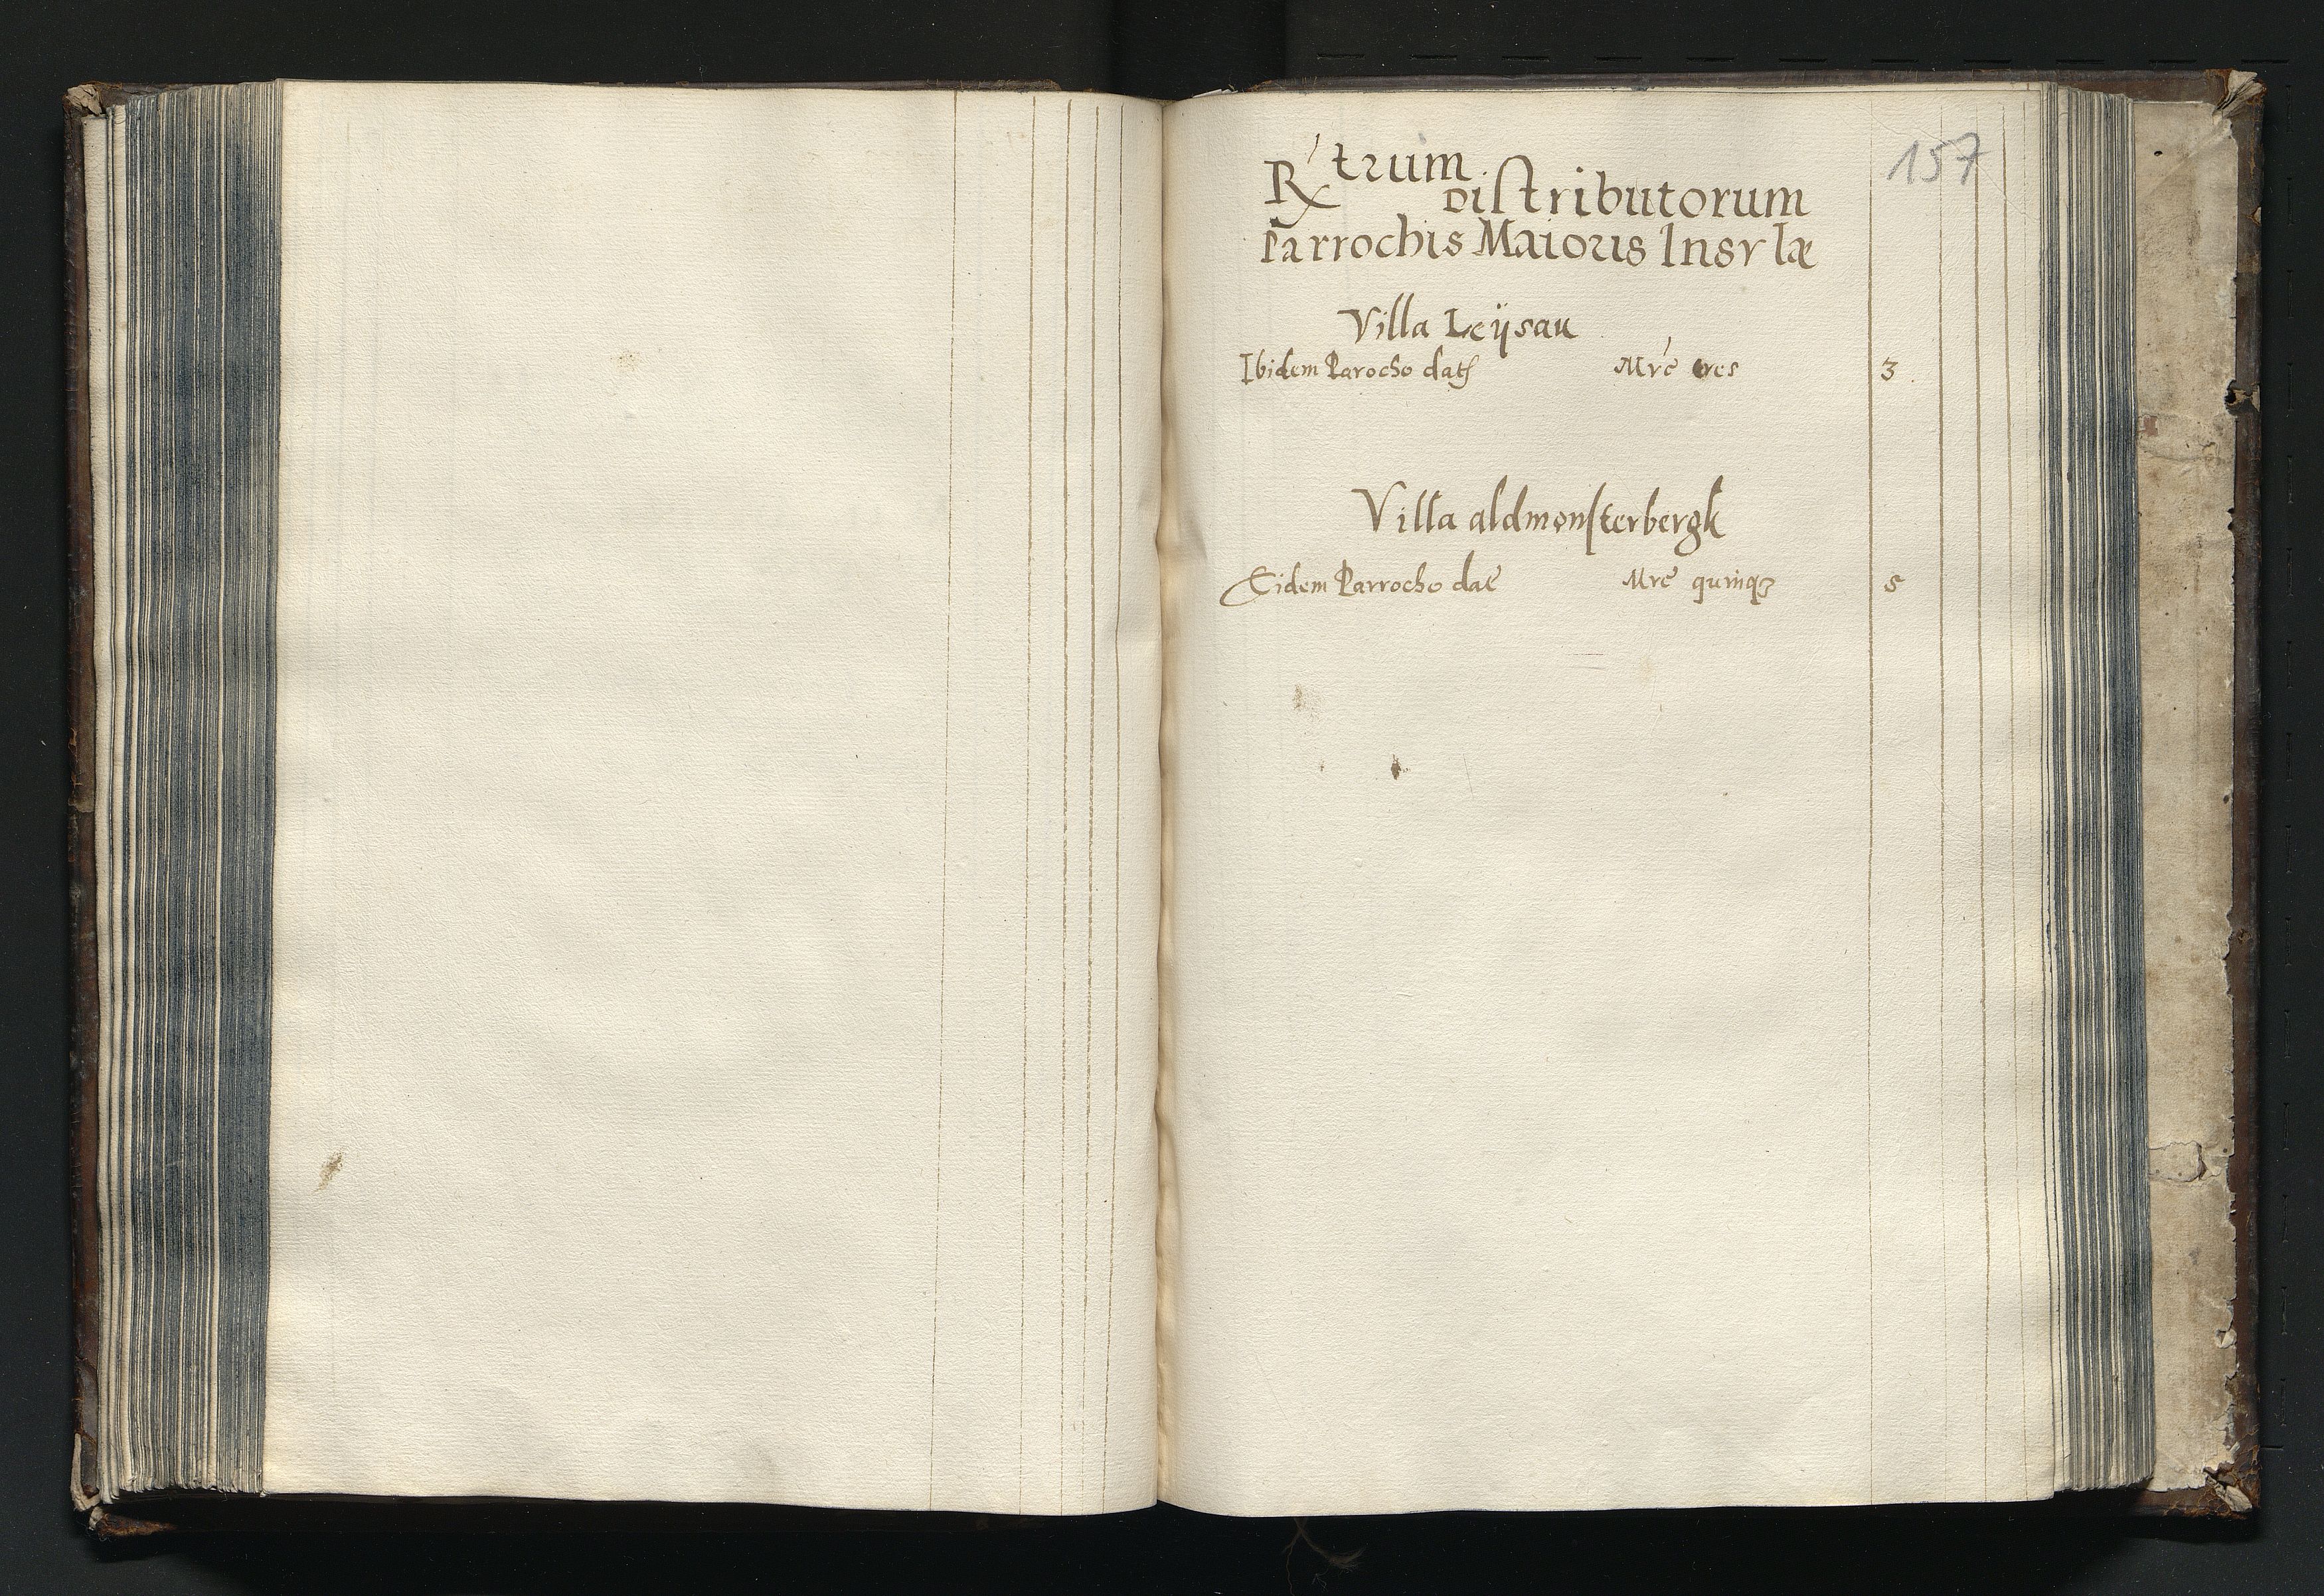 157
Rtrum
Distributorum
Parrochis Maioris Insvlæ
Villa Leÿsau
Ibidem Parocho dat Mrc tres 3
Villa aldmonsterbergk
Eidem Parrocho dat Mrc quinqꝫ 5